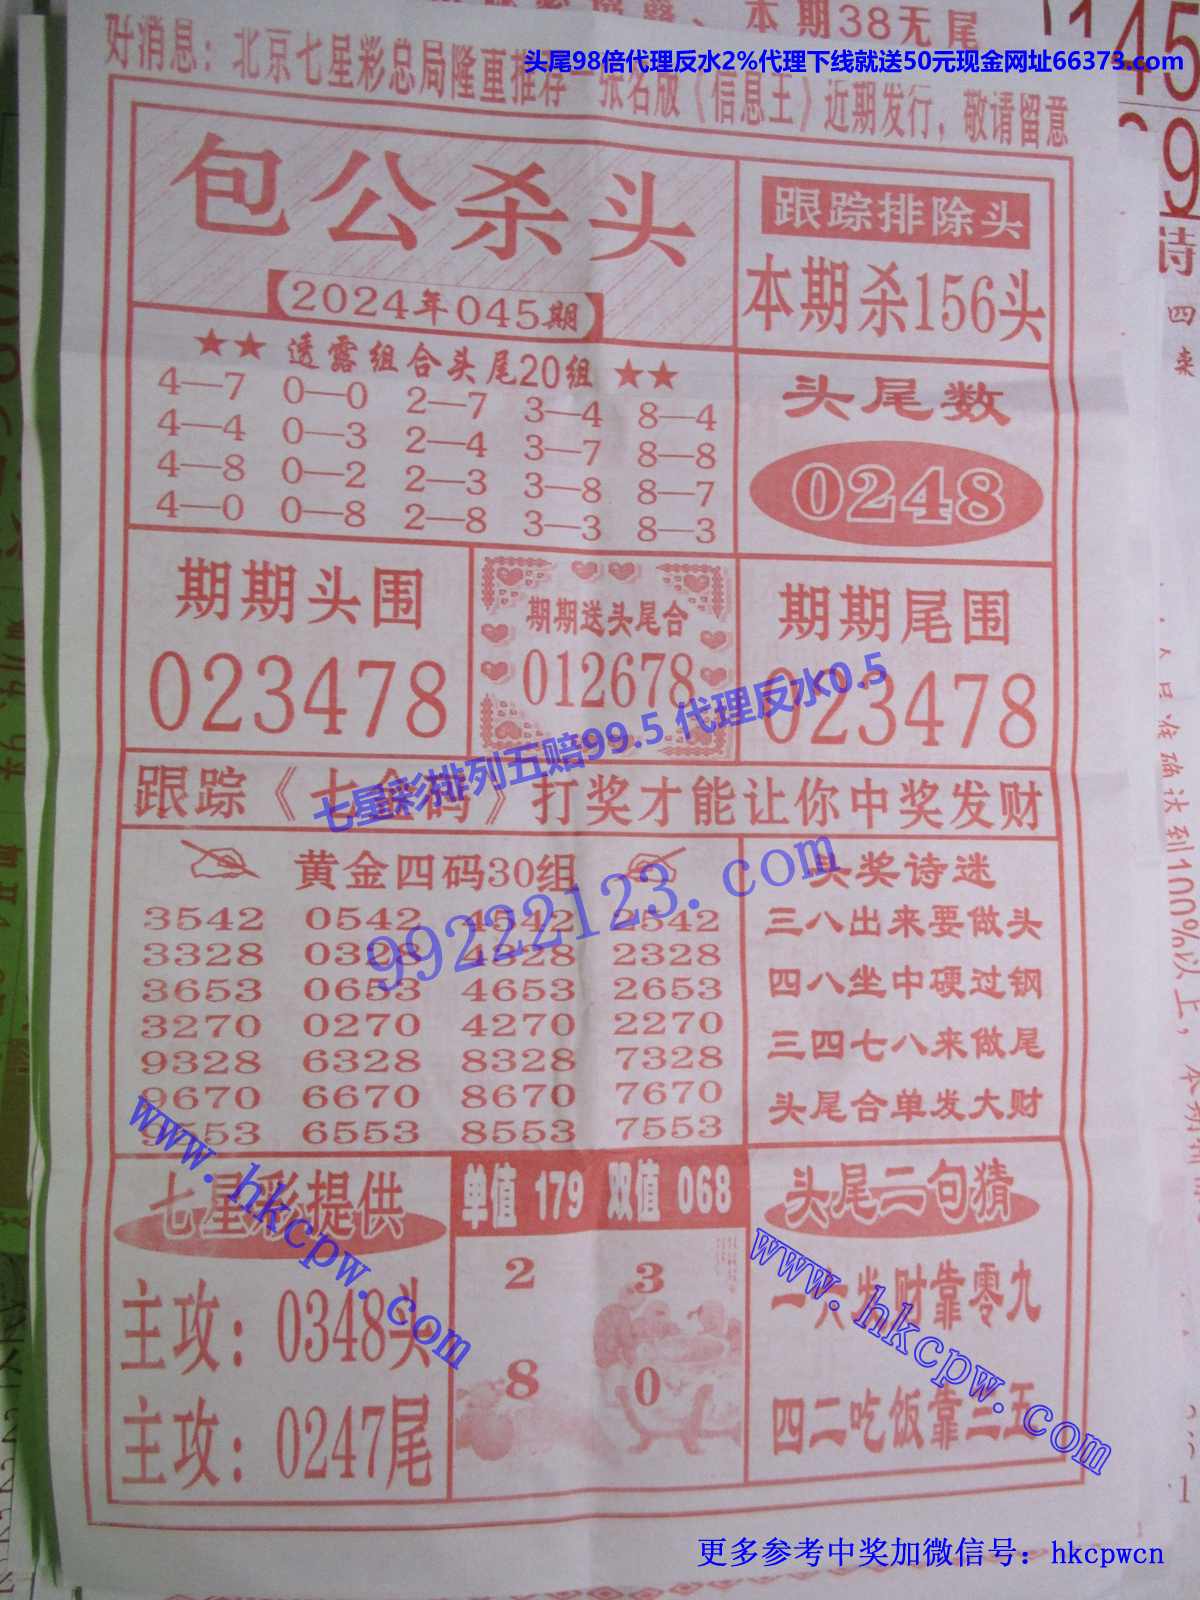 本期38无尾
头尾98倍代理反水2%代理下线就送50元现金网址66373.com
好消息：北京七星彩总局隆重推荐一张名版《信息王》近期发行，敬请留意
包公杀头
【2024年045期】
跟踪排除头
本期杀156头
★★ 透露组合头尾20组 ★★
4—7 0—0 2—7 3—4 8—4
4—4 0—3 2—4 3—7 8—8
4—8 0—2 2—3 3—8 8—7
4—0 0—8 2—8 3—3 8—3
头尾数
0248
期期头围
023478
期期送头尾合
012678
期期尾围
023478
七星彩排列五赔99.5 代理反水0.5
跟踪《七星码》打奖才能让你中奖发财
黄金四码30组
3542 0542 4542 2542
3328 0328 4328 2328
3653 0653 4653 2653
3270 0270 4270 2270
9328 6328 8328 7328
9670 6670 8670 7670
9553 6553 8553 7553
99222123.com
头奖诗迷
三八出来要做头
四八坐中硬过钢
三四七八来做尾
头尾合单发大财
七星彩提供
主攻：0348头
主攻：0247尾
www.hkcpw.com
单值 179 双值 068
2 3
8 0
头尾二句猜
一六发财靠零九
四二吃饭靠三五
www.hkcpw.com
更多参考中奖加微信号：hkcpwcn
145
诗
四